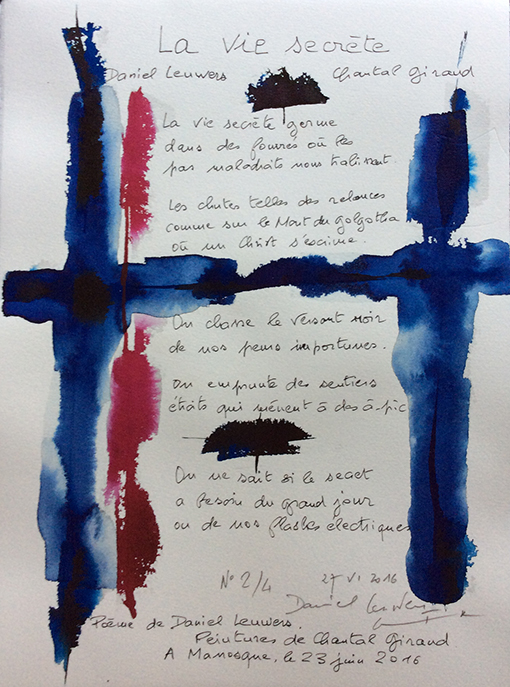 La vie secrète
Daniel Leuwers Chantal Giraud
La vie secrète germe
dans des fourrés où les
pas maladroits nous trahissent.
Les chutes telles des relances
comme sur le Mont du Golgotha
où un Christ s'escrime.
On classe le versant noir
de nos peurs importunes.
On emprunte des sentiers
étroits qui mènent à des à-pic
On ne sait si le secret
a besoin du grand jour
ou de nos flashes électriques
N° 2/4 27 VI 2016
Daniel Leuwers
Poème de Daniel Leuwers.
Peintures de Chantal Giraud
A Manosque, le 23 juin 2016